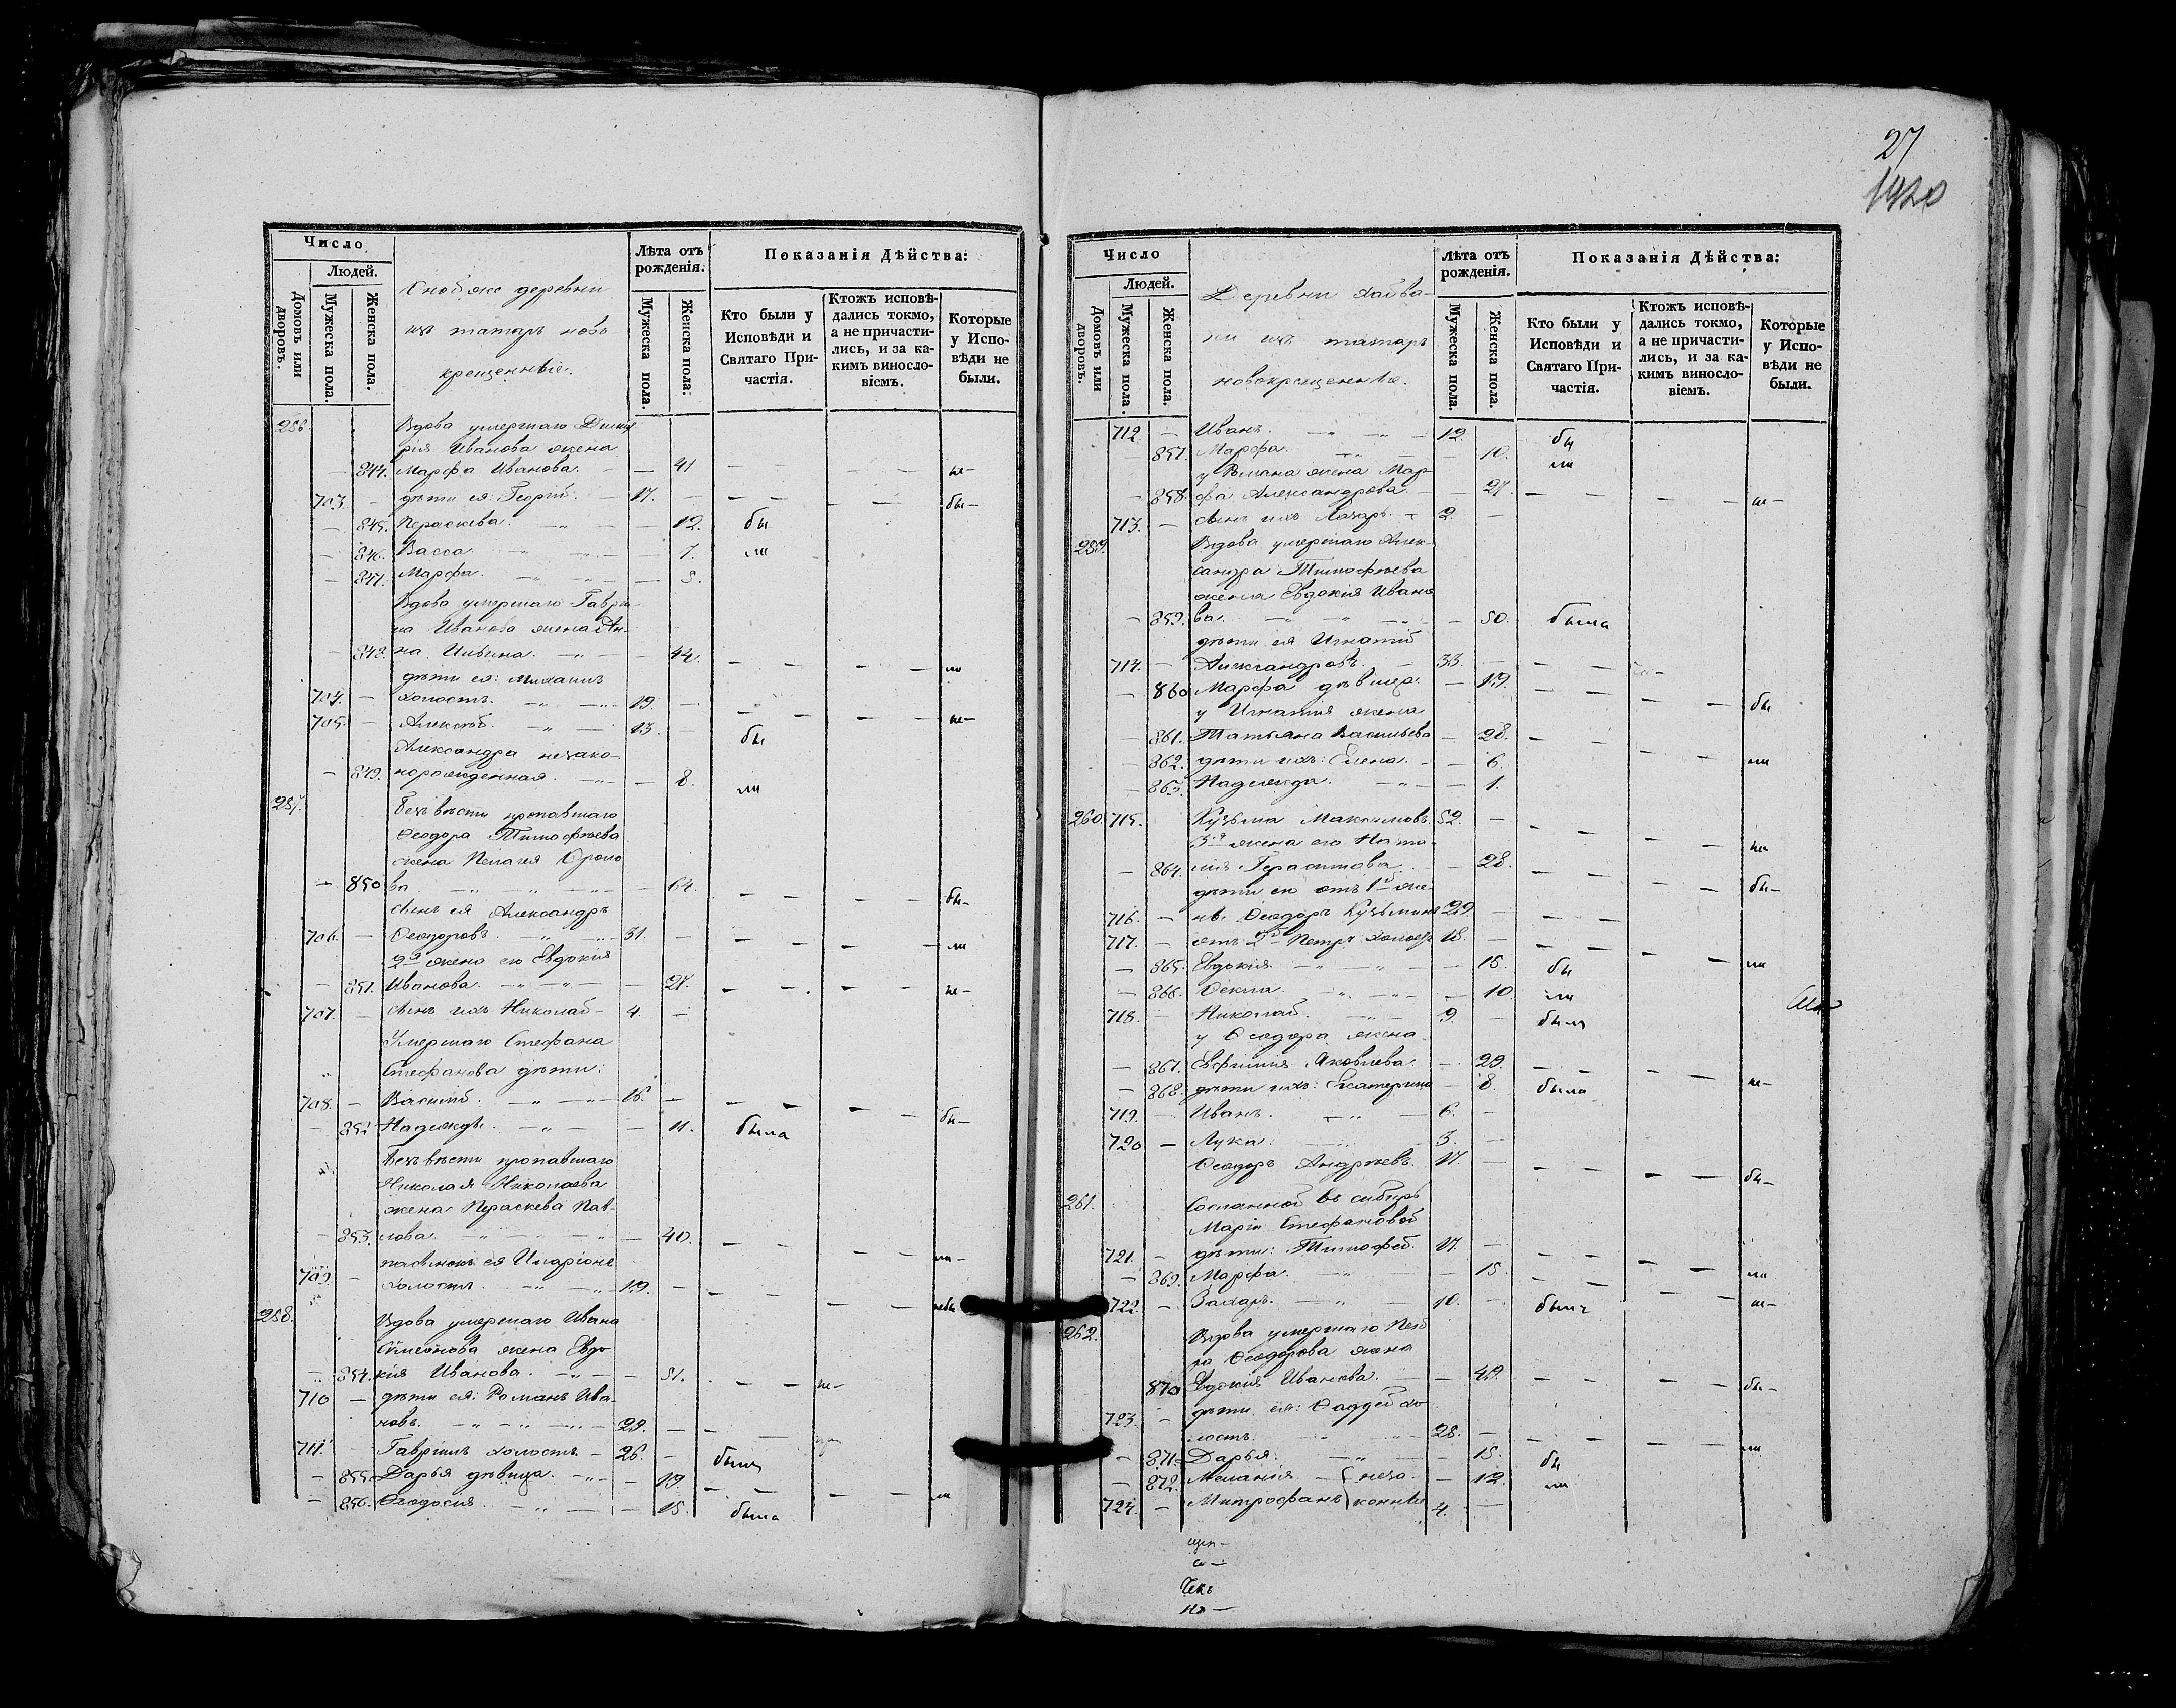 27
Число
Людей.
Домовъ или дворовъ.
Мужеска пола.
Женска пола.
деревни
изъ татаръ ново
крещенныя.
Лѣта отъ рожденія.
Мужеска пола.
Женска пола.
Показанія Дѣйства:
Кто были у Исповѣди и Святаго Причастія.
Ктожъ исповѣдались токмо, а не причастились, и за какимъ винословіемъ.
Которые у Исповѣди не были.
256 Вдова умершаго Дмит
рія Иванова жена
— 844. Марфа Иванова. — 41 — — не—
703. — дѣти ея: Георгій. — 17. — — — бы—
— 845. Параскева. — 12. бы
— 846. Васса — 7. ли
— 847. Марфа. — 5.
Вдова умершаго Гаври
ла Иванова жена Ан-
— 848. на Ильина. — 44. — — ли
дѣти ея: Михаилъ
704. — холостъ. — 19. — — — не—
705. — Алексѣй. — 13. — бы
Александра незако-
— 849. норожденная. — 8. ли
257. Безвѣсти пропавшаго
Ѳеодора Тимофѣева
жена Пелагея
— 850 ва — 64. — — бы—
сынъ ея Александръ
706. — Ѳеодоровъ. — 31. — — — ли
2я жена его Евдокія
— 851. Иванова. — 27. — — не—
707. — сынъ ихъ Николай — 4. —
Умершаго Стефана
Стефанова дѣти:
708. — Василій. — 16. — — — бы—
— 852 Надежда. — 11. была
Безвѣсти пропавшаго
Николая Николаева
жена Параскева Пав-
— 853. лова. — 40. — — ли—
пасынокъ ея Иларіонъ
709. — холостъ. — 19. — — — небы
258. Вдова умершаго Ивана
Симеонова жена Евдо-
— 854. кія Иванова. — 51. — — не—
710 — дѣти ея: Романъ Ива-
новъ. — 29. — —
711. — Гавріилъ холостъ. — 26. — былъ
— 855. Дарья дѣвица. — 19. — — ли
— 856. Ѳеодосія. — 15. была
Число
Людей.
Домовъ или дворовъ.
Мужеска пола.
Женска пола.
Деревни
ни изъ татаръ
новокрещенные.
Лѣта отъ рожденія.
Мужеска пола.
Женска пола.
Показанія Дѣйства:
Кто были у Исповѣди и Святаго Причастія.
Ктожъ исповѣдались токмо, а не причастились, и за какимъ винословіемъ.
Которые у Исповѣди не были.
712. — Иванъ. — 12. бы
857. Марфа. — 10. ли
у Романа жена Мар-
— 858. фа Александрова — 27. — — не—
713. — сынъ ихъ Лазарь. — 2. —
259. Вдова умершаго Алек-
сандра Тимофѣева
жена Евдокія Ивано
— 859. ва. — 50. была
дѣти ея Игнатій
714. — Александровъ. — 33. — — —
— 860 Марфа дѣвица. — 19. — — бы
у Игнатія жена
— 861. Татьяна Васильева — 28. — — ли
— 862. дѣти ихъ: Елена. — 6.
— 863. Надежда. — 1.
260. 715. Кузьма Максимовъ. 52. — — — не
3я жена его Ната-
— 864. лія Герасимова — 28. — — бы—
дѣти его отъ 1й же-
716. — ны Ѳеодоръ Кузьминъ 29. — — —
717. — отъ 2й Петръ холостъ 18. — — — ли
— 865. Евдокія. — 15. бы
— 866. Ѳекла. — 10. ли
718. — Николай. — 9. — былъ
у Ѳеодора жена
— 867. Евфимія Яковлева. — 29. — — не—
— 868. дѣти ихъ: Екатерина — 8. была
719. — Иванъ. — 6. —
720 — Лука. — 3. —
Ѳеодоръ Андреевъ. 17. — — — бы—
261. Сосланной въ сибирь
Маріи Стефановой
721. — дѣти: Тимофей. 17. — — — ли
— 869. Марфа. — 15. — — не—
722. — Захаръ. — 10. — былъ
262. Вдова умершаго
ра Ѳеодорова жена
870 Евдокія Иванова. — 49. — — бы—
723. — дѣти ея: Фаддей хо-
лостъ. — 28. — — — ли
— 871. Дарья. — 15. бы
— 872. Меланія — незо- — 12. ли
724. — Митрофанъ конные 4. —